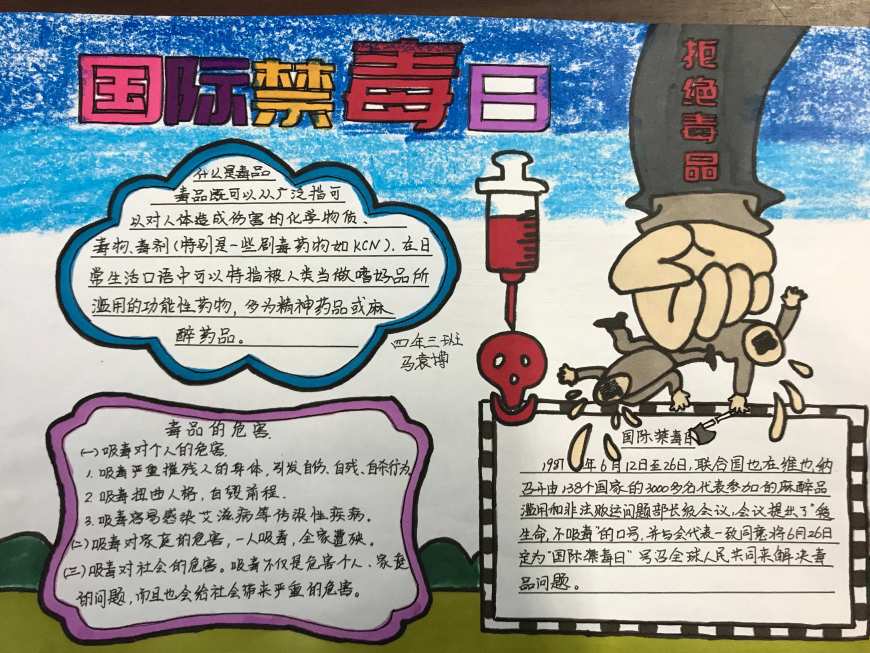 国际禁毒日
拒绝毒品
什么是毒品
毒品既可以从广泛指可
以对人体造成伤害的化学物质、
毒物、毒剂(特别是一些剧毒药物如KCN).在日
常生活口语中可以特指被人类当做嗜好品所
滥用的功能性药物,多为精神药品或麻
醉药品。
四年三班
马袁博
毒品的危害
(一)吸毒对个人的危害.
1.吸毒严重摧残人的身体,引发自伤、自残、自杀行为
2.吸毒扭曲人格,自毁前程.
3.吸毒容易感染艾滋病等传染性疾病。
(二)吸毒对家庭的危害,一人吸毒,全家遭殃。
(三)吸毒对社会的危害。吸毒不仅是危害个人、家庭
的问题,而且也会给社会带来严重的危害。
国际禁毒日
1987年6月12日至26日,联合国也在维也纳
召开由138个国家的3000多名代表参加的麻醉品
滥用和非法贩运问题部长级会议,会议提出了“爱
生命,不吸毒”的口号,并与会代表一致同意将6月26日
定为“国际禁毒日”号召全球人民共同来解决毒
品问题。